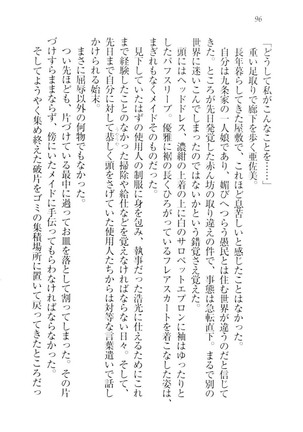 96
「どうして私がこんなことを……」
重い足取りで廊下を歩く亜佐美。
長年暮らしてきた屋敷で、これほど息苦しいと感じたことはない。
自分は九条家の一人娘であり、媚びへつらう愚民とは住む世界が違うのだと信じて
いた。ところが先日発覚した赤ん坊の取り違えの件で、事態は急転直下。まるで別の
世界に迷いこんでしまったのではないかという錯覚さえ覚えた。
頭にはヘッドドレス、濃紺の上着の上に白のサロペットエプロンに袖はゆったりと
したパフスリーブ。優雅に裾の長くひろがっているフレアスカートを着こなした姿は、
まぎれもなくメイドそのもの。
見下していたはずの使用人の制服に身を包み、執事だった浩光に仕えるためにこれ
まで経験したことのない掃除や給仕などを覚えなくてはならない日々。そして、
先日まで自分に対して恭しく頭をさげていた使用人たちからは対等な言葉遣いで話し
かけられる始末。
まさに屈辱以外の何物でもなかった。
つい先ほども、片づけている最中に過ってお皿を落として割ってしまった。その片
づけすらままならず、傍にいたメイドに手伝ってもらわなければならなかった。
そしてようやく集め終えた破片をゴミの集積場所に置いて戻ってきたところだっ